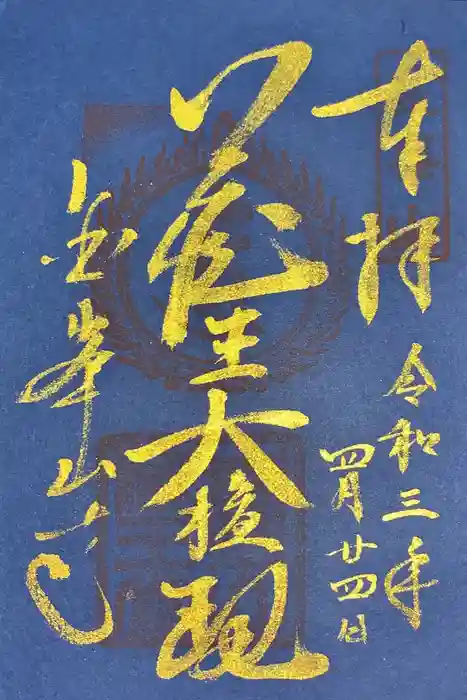 奉拝
令和三年
四月廿四日
蔵王大権現
金峯山寺